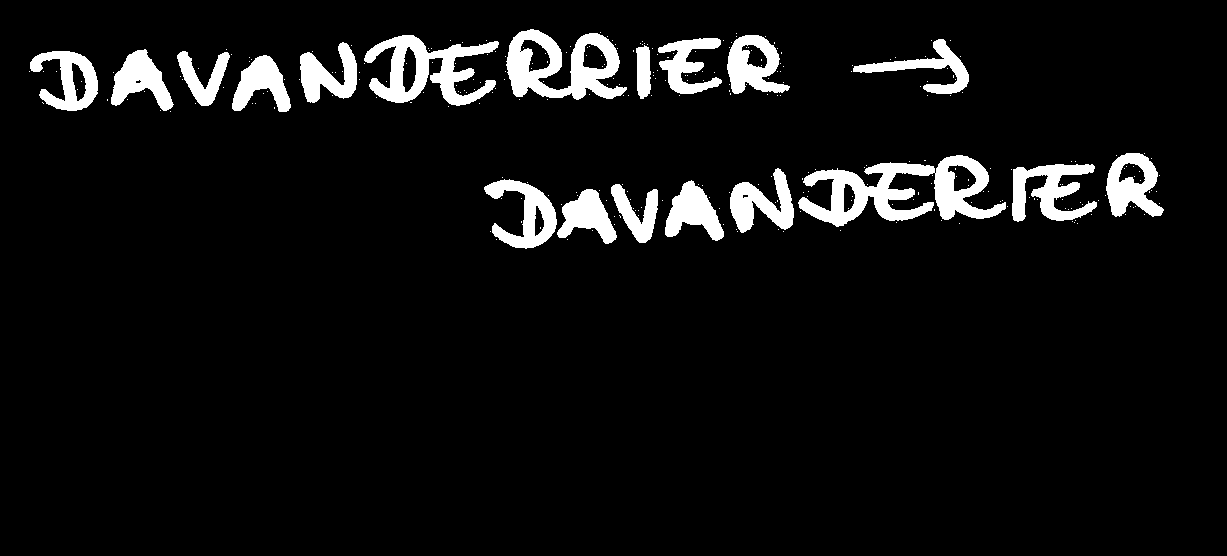 DAVANDERRIER →
DAVANDERIER